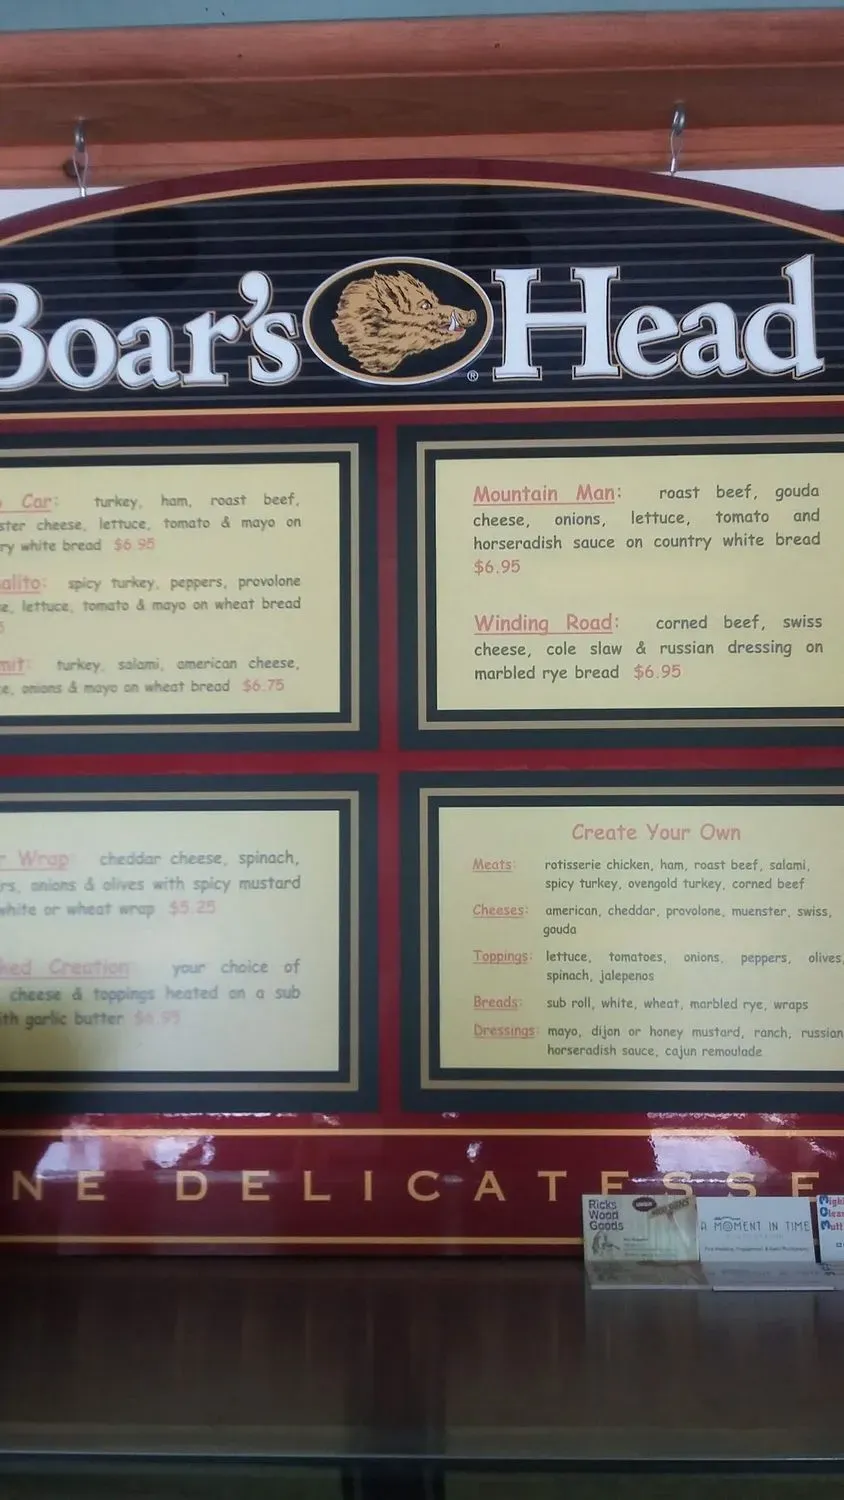 Boar's Head
®
Car: turkey, ham, roast beef,
cheese, lettuce, tomato & mayo on
white bread $6.95
spicy turkey, peppers, provolone
lettuce, tomato & mayo on wheat bread
turkey, salami, american cheese,
onions & mayo on wheat bread $6.75
Mountain Man: roast beef, gouda
cheese, onions, lettuce, tomato and
horseradish sauce on country white bread
$6.95
Winding Road: corned beef, swiss
cheese, cole slaw & russian dressing on
marbled rye bread $6.95
Wrap: cheddar cheese, spinach,
onions & olives with spicy mustard
white or wheat wrap $5.25
Creation: your choice of
cheese & toppings heated on a sub
with garlic butter $6.95
Create Your Own
Meats: rotisserie chicken, ham, roast beef, salami,
spicy turkey, ovengold turkey, corned beef
Cheeses: american, cheddar, provolone, muenster, swiss,
gouda
Toppings: lettuce, tomatoes, onions, peppers, olives,
spinach, jalepenos
Breads: sub roll, white, wheat, marbled rye, wraps
Dressings: mayo, dijon or honey mustard, ranch, russian
horseradish sauce, cajun remoulade
NE DELICATESSE
Ricks
Wood
Goods
A MOMENT IN TIME